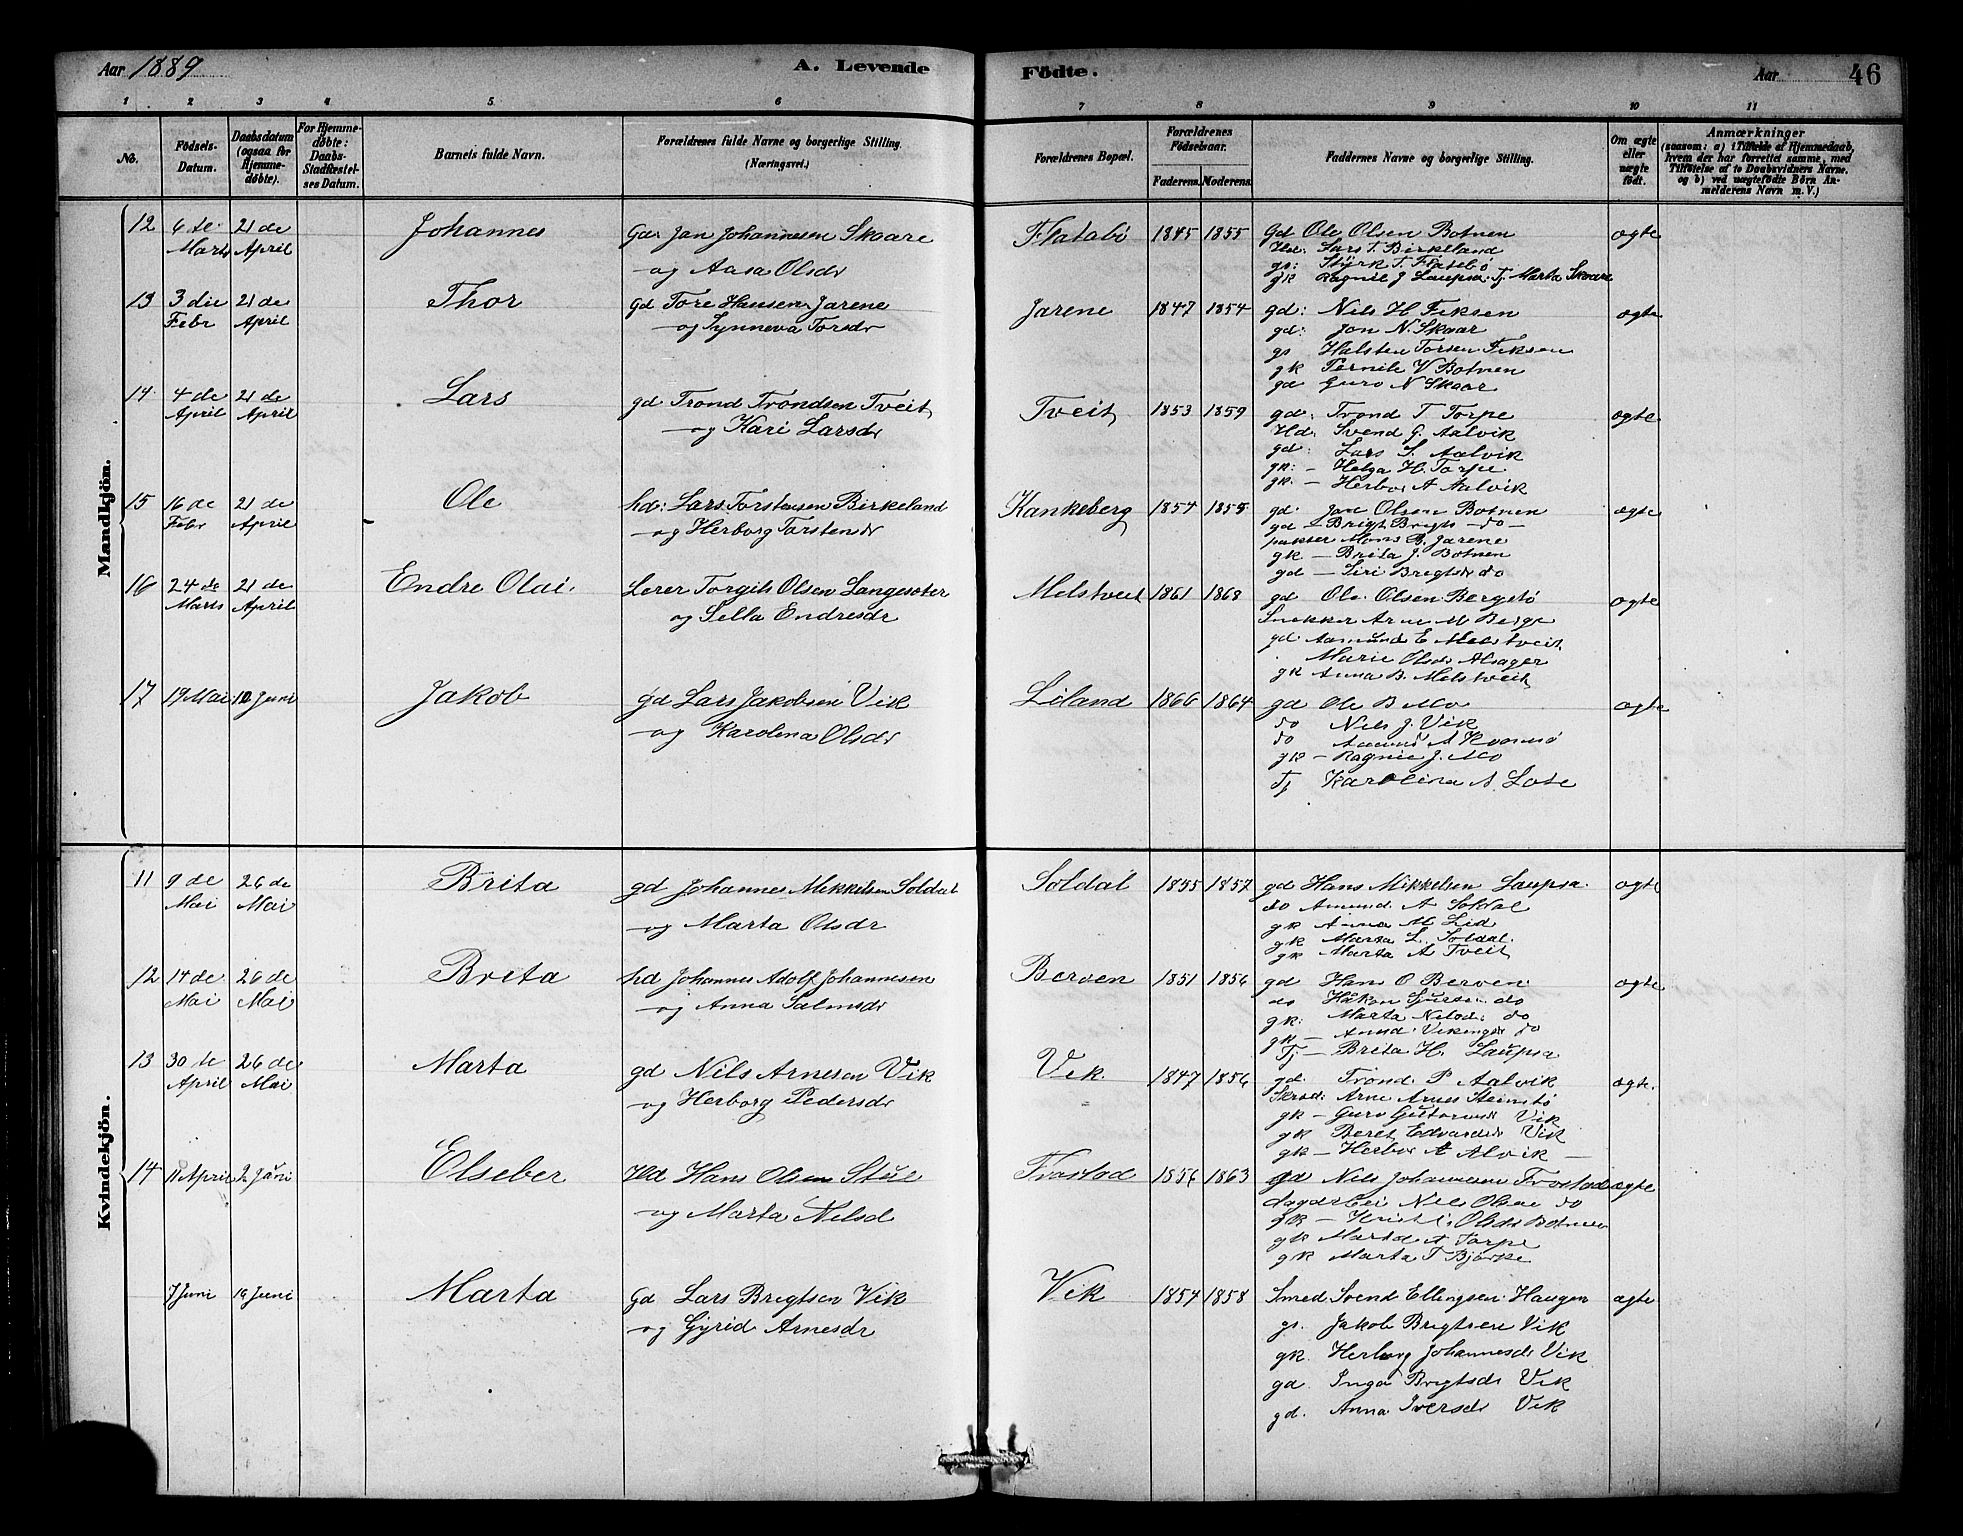 Aar 1889 A. Levende Födte. Aar 46
1 2 3 4 5. 6 7 8 9 10 11
No. Födsels-Datum. Daabsdatum (ogsaa for Hjemmedöbte). For Hjemmedöbte: Daabs-Stadfæstelses Datum. Barnets fulde Navn. Forældrenes fulde Navne og borgerlige Stilling. (Næringsvei.) Forældrenes Bopæl. Forældrenes Födselsaar. Faderens. Moderens. Faddernes Navne og borgerlige Stilling. Om ægte eller uægte födt. Anmærkninger (saasom: a) i Tilfælde af Hjemmedaab, hvem der har forrettet samme, med Tilföielse af to Daabsvidners Navne. og b) ved uægtefödte Börn Anmelderens Navn m. V.)
Mandkjön.
12 6 te Marts 21 de April Johannes Gd: Jan Johannesen Skaare Flatabö 1845 1855 Gd Ole Olsen Botnen ægte
og Aasa Olsdr Hd: Lars T. Birkeland
gs: Styrk T. Flatebö
gk Ragnil J Laupsa. Tj Marta Skaare
13 3 die Febr 21 de April Thor gd Tore Hansen Jarene Jarene 1847 1854 gd: Nils H Fiksen ægte
og Synneva Torsdr gd: Jon N. Skaar
gs Halsten Torsen Fiksen
gk Pernile V Botnen
gd Guro N Skaar
14. 4 de April 21 de April Lars gd Trond Trondsen Tveit Tveit 1853 1859 gd: Trond T Torpe ægte
og Kari Larsdr Hd: Svend G. Aalvik
gd: Lars S. Aalvik
gk: - Helga H. Torpe
gk. - Herbor A Aalvik
15 16 de Febr 21 de April Ole hd: Lars Torstensen Birkeland Kankeberg 1854 1855 gd: Jon Olsen Botnen ægte
og Herborg Torstensdr gd - Brigt Brigts - do -
Mons B. Jarene
gk - Brita J. Botnen
gd - Siri Brigtsdr do
16 24 de Marts 21 de April Endre Olai. Lærer Torgils Olsen Langesæter Melstveit 1861 1868 gd Ole Olsen Bergstö ægte
og Sella Endresdr Snekker Arne M Berge
gd Aasmund E Melstveit
Marie Olsdr Alsager
gk Anna B. Melstveit
17 19 Mai 10 Juni Jakob gd Lars Jakobsen Vik Liland 1866 1864 gd Ole B Mo ægte
og Karolina Olsdr do Nils J. Vik
do
gk - J. Mo
Tj Karolina A. Lote
Kvindekjön.
11 9 de Mai 26 de Mai Brita gd Johannes Mikkelsen Soldal Soldal 1855 1857 gd Hans Mikkelsen Laupsa. ægte
og Marta Olsdr do Amund A Soldal
gk Anna M Lid
gk Marta L. Soldal.
gk Marta A Tveit
12 14 de Mai 26 de Mai Brita hd Johannes Adolf Johannesen Berven 1851 1856 gd Hans O Berven ægte
og Anna Salmsdr do Håkon Sjurse. do
gk: Marta Nelsd: do
gk - Vikingsdr do
Tj - Brita H. Laupsa
13 30 te April 26 de Mai Marta gd Nils Arnesen Vik Vik. 1847 1856 gd. Trond P Aalvik ægte.
og Herborg Pedersdr Skred: Arne Arnes Steinstö
gk - Guro Vik
gk Beret Edvardsdr Vik
gk - Herbor A Alvik -
14 11 April 2 Juni Elseber Hd Hans Olsen Stul Frostad 1856 1863 gd Nils Johannesen Frostad ægte
og Marta Nelsd Nils Olsen do
gk - Olsdr Botnen
gk Marta A Torpe
gk Marta T Bjørke
7 Juni 19 Juni Marta gd Lars Brigtsen Vik Vik 1854 1858 Smed Svend Ellingsen Haugen ægte
og Gyrid Arnesdr gs. Jakob Brigtsen Vik
gk. Herborg Johannesdr Vik
gd. Inga Brigtsdr Vik
gd. Anna Iversdr Vik